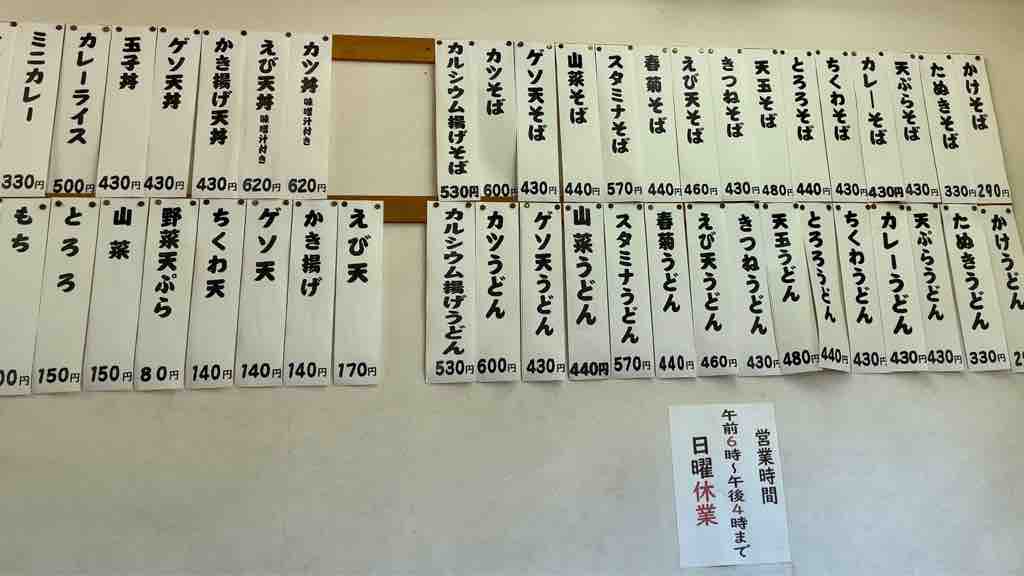 かけそば 290円
たぬきそば 330円
天ぷらそば 430円
カレーそば 430円
ちくわそば 430円
とろろそば 440円
天玉そば 480円
きつねそば 430円
えび天そば 460円
春菊そば 440円
スタミナそば 570円
山菜そば 440円
ゲソ天そば 430円
カツそば 600円
カルシウム揚げそば 530円
カツ丼 味噌汁付き 620円
えび天丼 味噌汁付き 620円
かき揚げ天丼 430円
ゲソ天丼 430円
玉子丼 430円
カレーライス 500円
ミニカレー 330円
かけうどん
たぬきうどん 330円
天ぷらうどん 430円
カレーうどん 430円
ちくわうどん 430円
とろろうどん 440円
天玉うどん 480円
きつねうどん 430円
えび天うどん 460円
春菊うどん 440円
スタミナうどん 570円
山菜うどん 440円
ゲソ天うどん 430円
カツうどん 600円
カルシウム揚げうどん 530円
えび天 170円
かき揚げ 140円
ゲソ天 140円
ちくわ天 140円
野菜天ぷら 80円
山菜 150円
とろろ 150円
もち
営業時間
午前6時〜午後4時まで
日曜休業